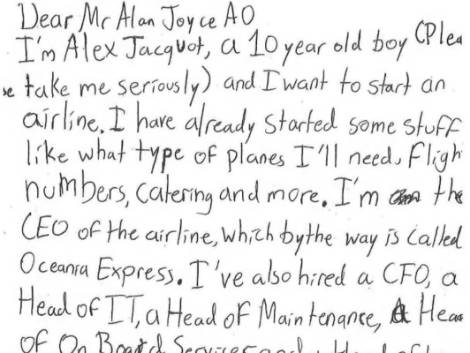 Dear Mr Alan Joyce AO
I'm Alex Jacquot, a 10 year old boy (Plea
se take me seriously) and I want to start an
airline. I have already started some stuff
like what type of planes I'll need, fligh
numbers, catering and more. I'm the
CEO of the airline, which by the way is called
Oceania Express. I've also hired a CFO, a
Head of IT, a Head of Maintenance, A Hea
of On Board Services and Head of